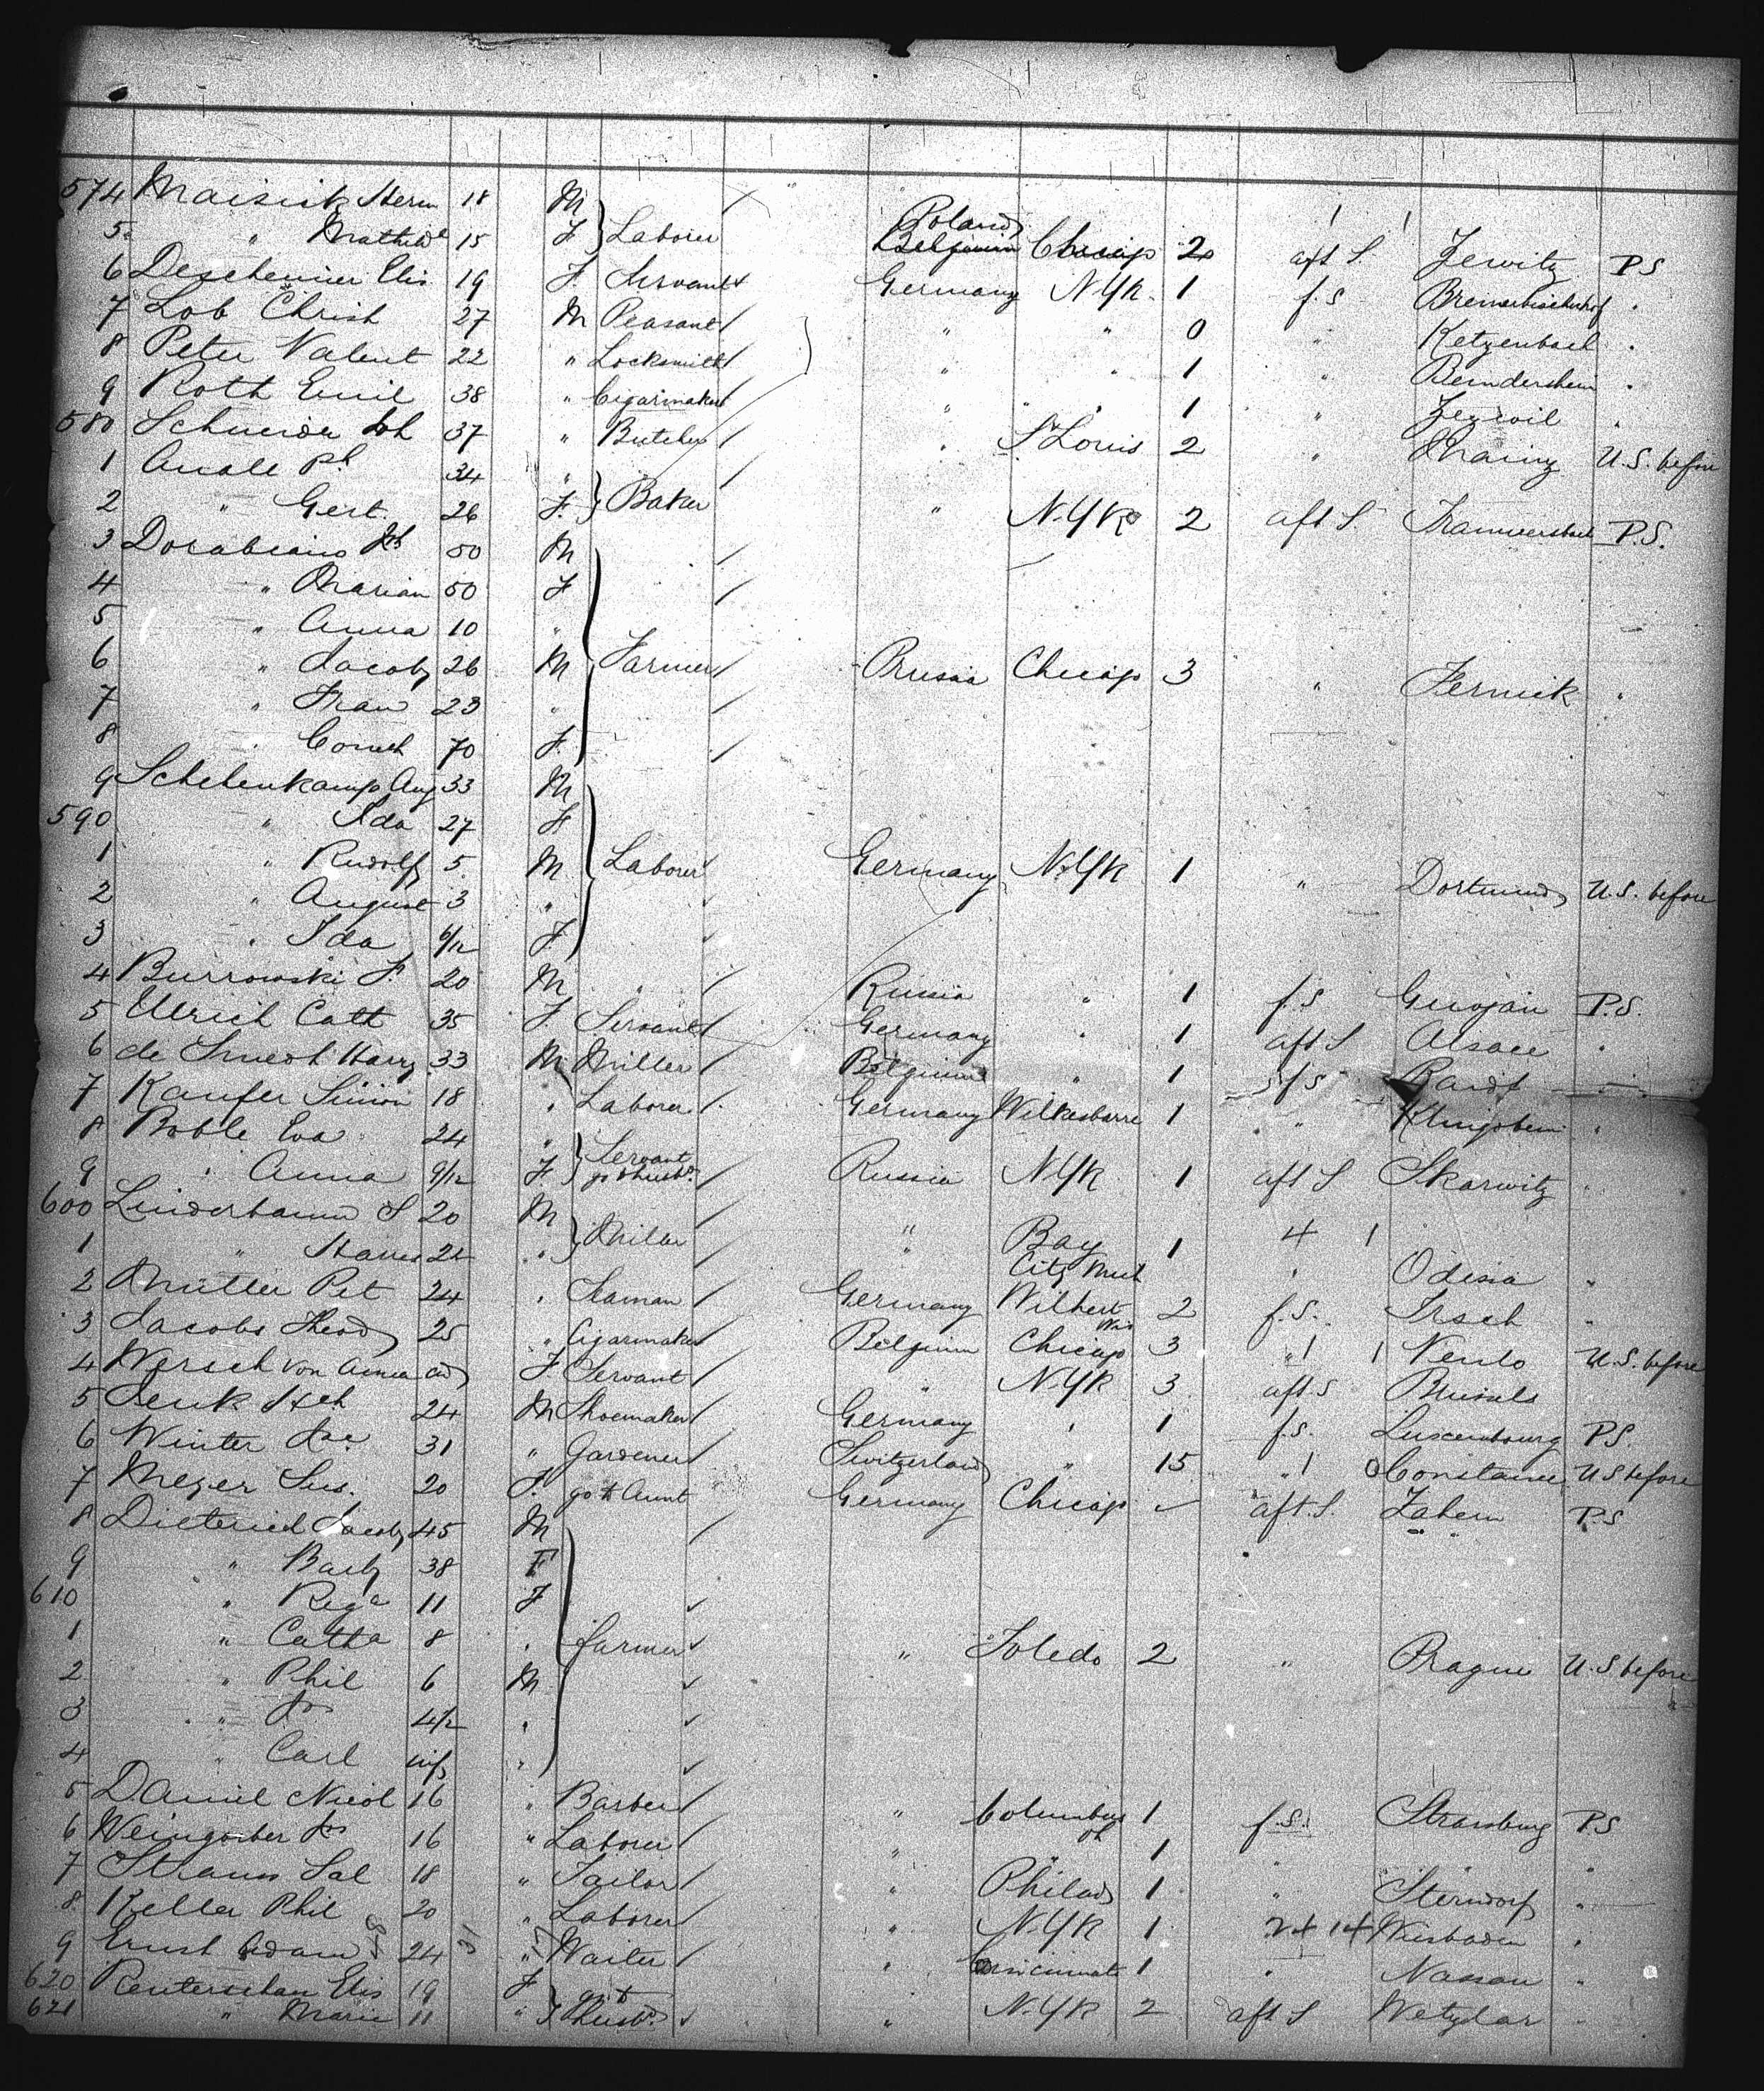 574 Maisick Herm 18 M
5 " Mathilde 15 F Laborer Poland Belgium Chicago 2 aft S Zewitz P.S
6 Elis 19 F. Servant Germany N.Y.K. 1 f.s "
7 Lob Christ 27 M Peasant " " 0 " Ketzenbach "
8 Peter Valent 22 " Locksmith " " 1 " "
9 Roth Emil 38 " Cigarmaker " " 1 " "
580 Schneider Joh 37 " Butcher " St Louis 2 " Mainz U.S. before
1 Anale Ph 34 "
2 " Gert. 26 F. Baker " N.Y.K. 2 aft S P.S.
3 Dorabeano Joh 50 M
4 " Marian 50 F
5 " Anna 10 "
6 " Jacob 26 M Farmer Prussia Chicago 3 " Fernick "
7 " Fran 23 "
8 " 70 F.
9 Schehenkamp Aug 33 M
590 " Ida 27 F
1 " Rudolf 5 M Laborer Germany N.Y.K 1 " Dortmund U.S. before
2 " August 3 "
3 " Ida 6/12 F
4 Burrowski F. 20 M " Russia " 1 f.s P.S.
5 Ulrich Cath 35 F. Servant Germany " 1 aft S Alsace "
6 de Smedt Harry 33 M Miller Belgium " 1 f.s "
7 Kaufer Simon 18 " Laborer Germany Wilkesbarre 1 " "
8 Boble Eva 24 "
9 " Anna 9/12 F Servant go t husbd. Russia N.Y.K. 1 aft S Skarwitz "
600 Linderbaum S 20 M
1 " Hannes 22 " Miller " Bay City Mich 1 " Odessa "
2 Müller Pet 24 " Seaman Germany Wis 2 f.s. Irsch "
3 Jacobs Theod 25 " Cigarmaker Belgium Chicago 3 " Venlo U.S. before
4 Wersch von Anna ad F. Servant " N.Y.K 3 aft S Brussels
5 Jenk Hch 24 M Shoemaker Germany " 1 f.s. Luxembourg P.S.
6 Winter Jac 31 " Gardener Switzerland " 15 " Constance U S before
7 Meyer Sus. 20 F. go to Aunt Germany Chicago aft. S. Zabern P.S
8 Dieterich Jacob 45 M
9 " Barb 38 F
610 " Rega 11 F
1 " Catha 8 " farmer " Toledo 2 " Prague U.S before
2 " Phil 6 M
3 " Jos 4/12 "
4 " Carl inf "
5 Daniel Nicol 16 " Barber " Columbus oh 1 f.s. Strassburg P.S
6 Jos 16 " Laborer " " 1 " " "
7 Strauss Sal 18 " Tailor " Philad 1 " Sterndorf "
8 Keller Phil 20 " Laborer " N.Y.K 1 Wiesbaden "
9 Ernst Adam 24 " Waiter " Cincinnati 1 " Nassau "
620 Elis 19 F
621 " Marie 11 " go to husbd. " N.Y.K 2 aft S Wetzlar "